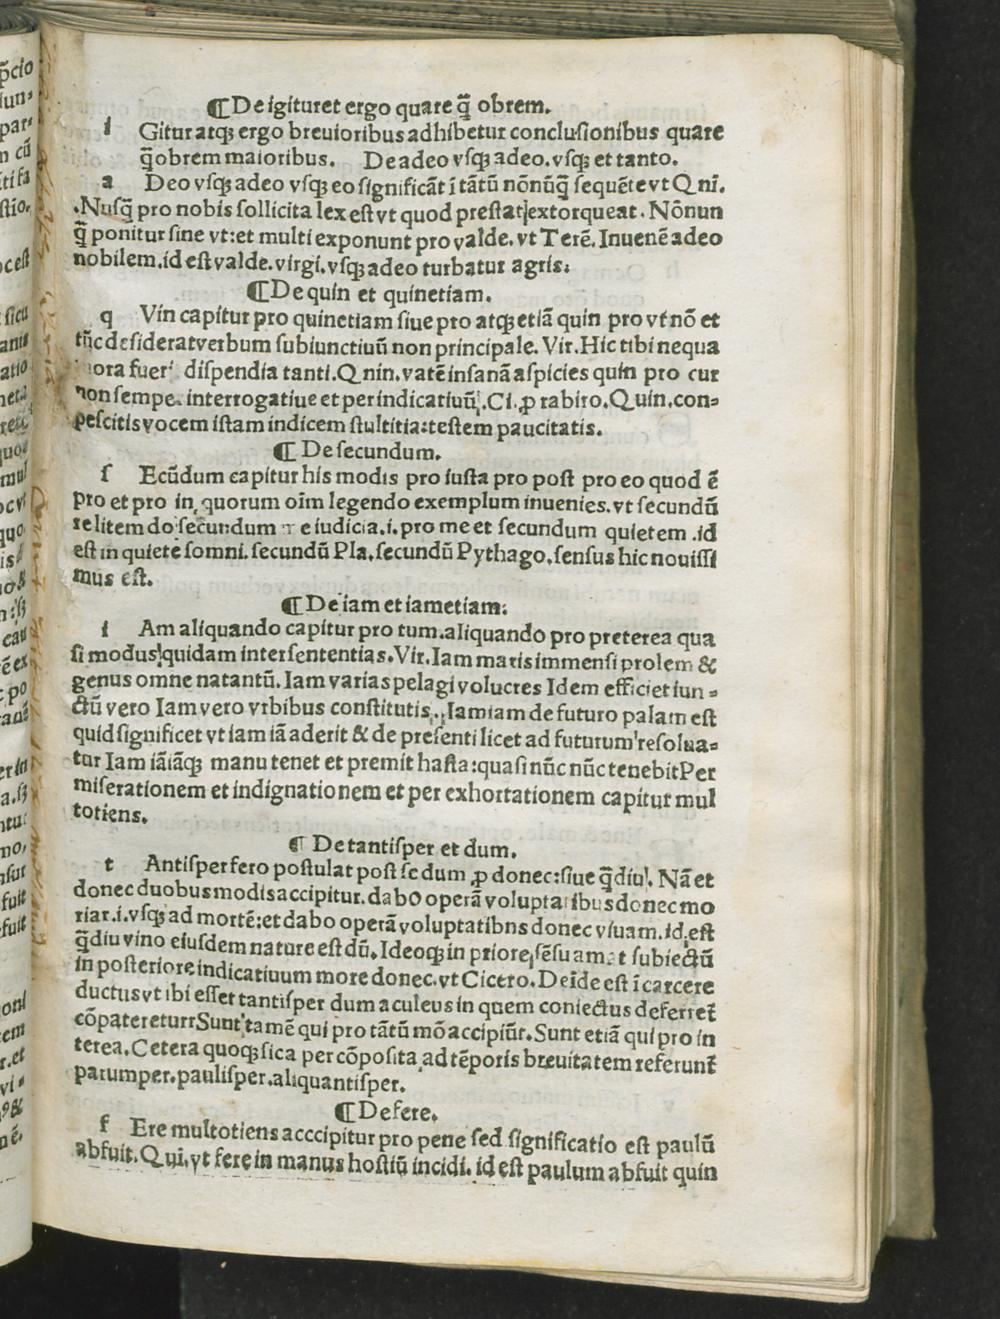 ¶De igitur et ergo quare q̄ obrem.
i Gitur atqꝫ ergo breuioribus adhibetur conclusionibus quare
q̄obrem maioribus. De adeo vsqꝫ adeo. vsqꝫ et tanto.
a Deo vsqꝫ adeo vsqꝫ eo significāt ī tātū nōnūq̄ sequēte vt Q ni.
.Nusq̄ pro nobis sollicita lex est vt quod prestat extorqueat. Nōnun
q̄ ponitur sine vt: et multi exponunt pro valde. vt Terē. Inuenē adeo
nobilem. id est valde. virgi. vsqꝫ adeo turbatur agris:
¶De quin et quinetiam.
q Vin capitur pro quinetiam siue pro atqꝫ etiā quin pro vt nō et
tūc desiderat verbum subiunctiuū non principale. Vir. Hic tibi nequa
mora fueri dispendia tanti. Q nin. vatē insanā aspicies quin pro cur
non sempe. interrogatiue et per indicatiuū. Ci. ꝓ rabiro. Quin. con=
pescitis vocem istam indicem stultitia: testem paucitatis.
¶ De secundum.
s Ecūdum capitur his modis pro iusta pro post pro eo quod ē
pro et pro in quorum oīm legendo exemplum inuenies. vt secundū
te litem do secundum me iudicia. i. pro me et secundum quietem .id
est in quiete somni. secundū Pla. secundū Pythago. sensus hic nouissi
mus est.
¶ De iam et iametiam:
i Am aliquando capitur pro tum. aliquando pro preterea qua
si modus quidam inter sententias. Vir. Iam maris immensi prolem &
genus omne natantū. Iam varias pelagi volucres Idem efficiet iun=
ctū vero Iam vero vrbibus constitutis. Iamiam de futuro palam est
quid significet vt iam iā aderit & de presenti licet ad futurum resolua=
tur Iam iāiāqꝫ manu tenet et premit hasta: quasi nūc nūc tenebit Per
miserationem et indignationem et per exhortationem capitur mul
totiens.
¶ De tantisper et dum.
t Antisper fero postulat post se dum ꝓ donec: siue q̄diu. Nā et
donec duobus modis accipitur. dabo operā voluptatibus donec mo
riar. i. vsqꝫ ad mortē: et dabo operā voluptatibns donec viuam. id est
q̄diu vino eiusdem nature est dū. Ideoqꝫ in priore sēsu amat subiectū
in posteriore indicatiuum more donec. vt Cicero. Deīde est ī carcere
ductus vt ibi esset tantisper dum aculeus in quem coniectus deferret
cōpateretur Sunt tamē qui pro tātū mō accipiūt. Sunt etiā qui pro in
terea. Cetera quoqꝫ sica per cōposita ad tēporis breuitatem referunt
parumper. paulisper. aliquantisper.
¶ De fere.
f Ere multotiens acccipitur pro pene sed significatio est paulū
abfuit. Qui. vt fere in manus hostiū incidi. id est paulum abfuit quin